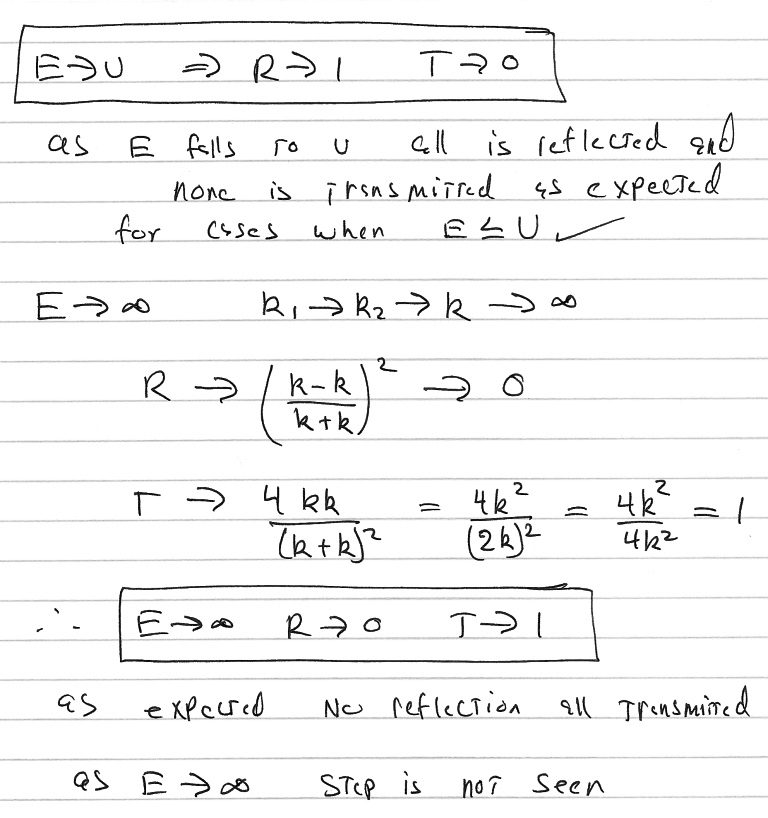 E → U ⇒ R → 1 T → 0
as E falls to U all is reflected and
none is transmitted as expected
for cases when E ≤ U ✓
E → ∞ k₁ → k₂ → k → ∞
R → ((k-k)/(k+k))² → 0
T → 4kk/(k+k)² = 4k²/(2k)² = 4k²/4k² = 1
∴ E → ∞ R → 0 T → 1
as expected No reflection all transmitted
as E → ∞ step is not seen